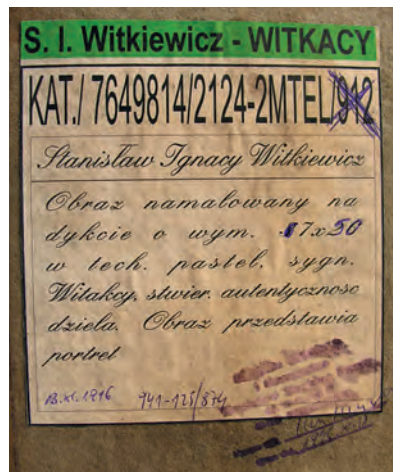 S. I. Witkiewicz - WITKACY
KAT./ 7649814/2124-2MTEL/912
Stanisław Ignacy Witkiewicz
Obraz namalowany na
dykcie o wym. 87x50
w tech. pastel. sygn.
Witakcy, stwier. autentycznosc
dzieła. Obraz przedstawia
portret
941-125/874